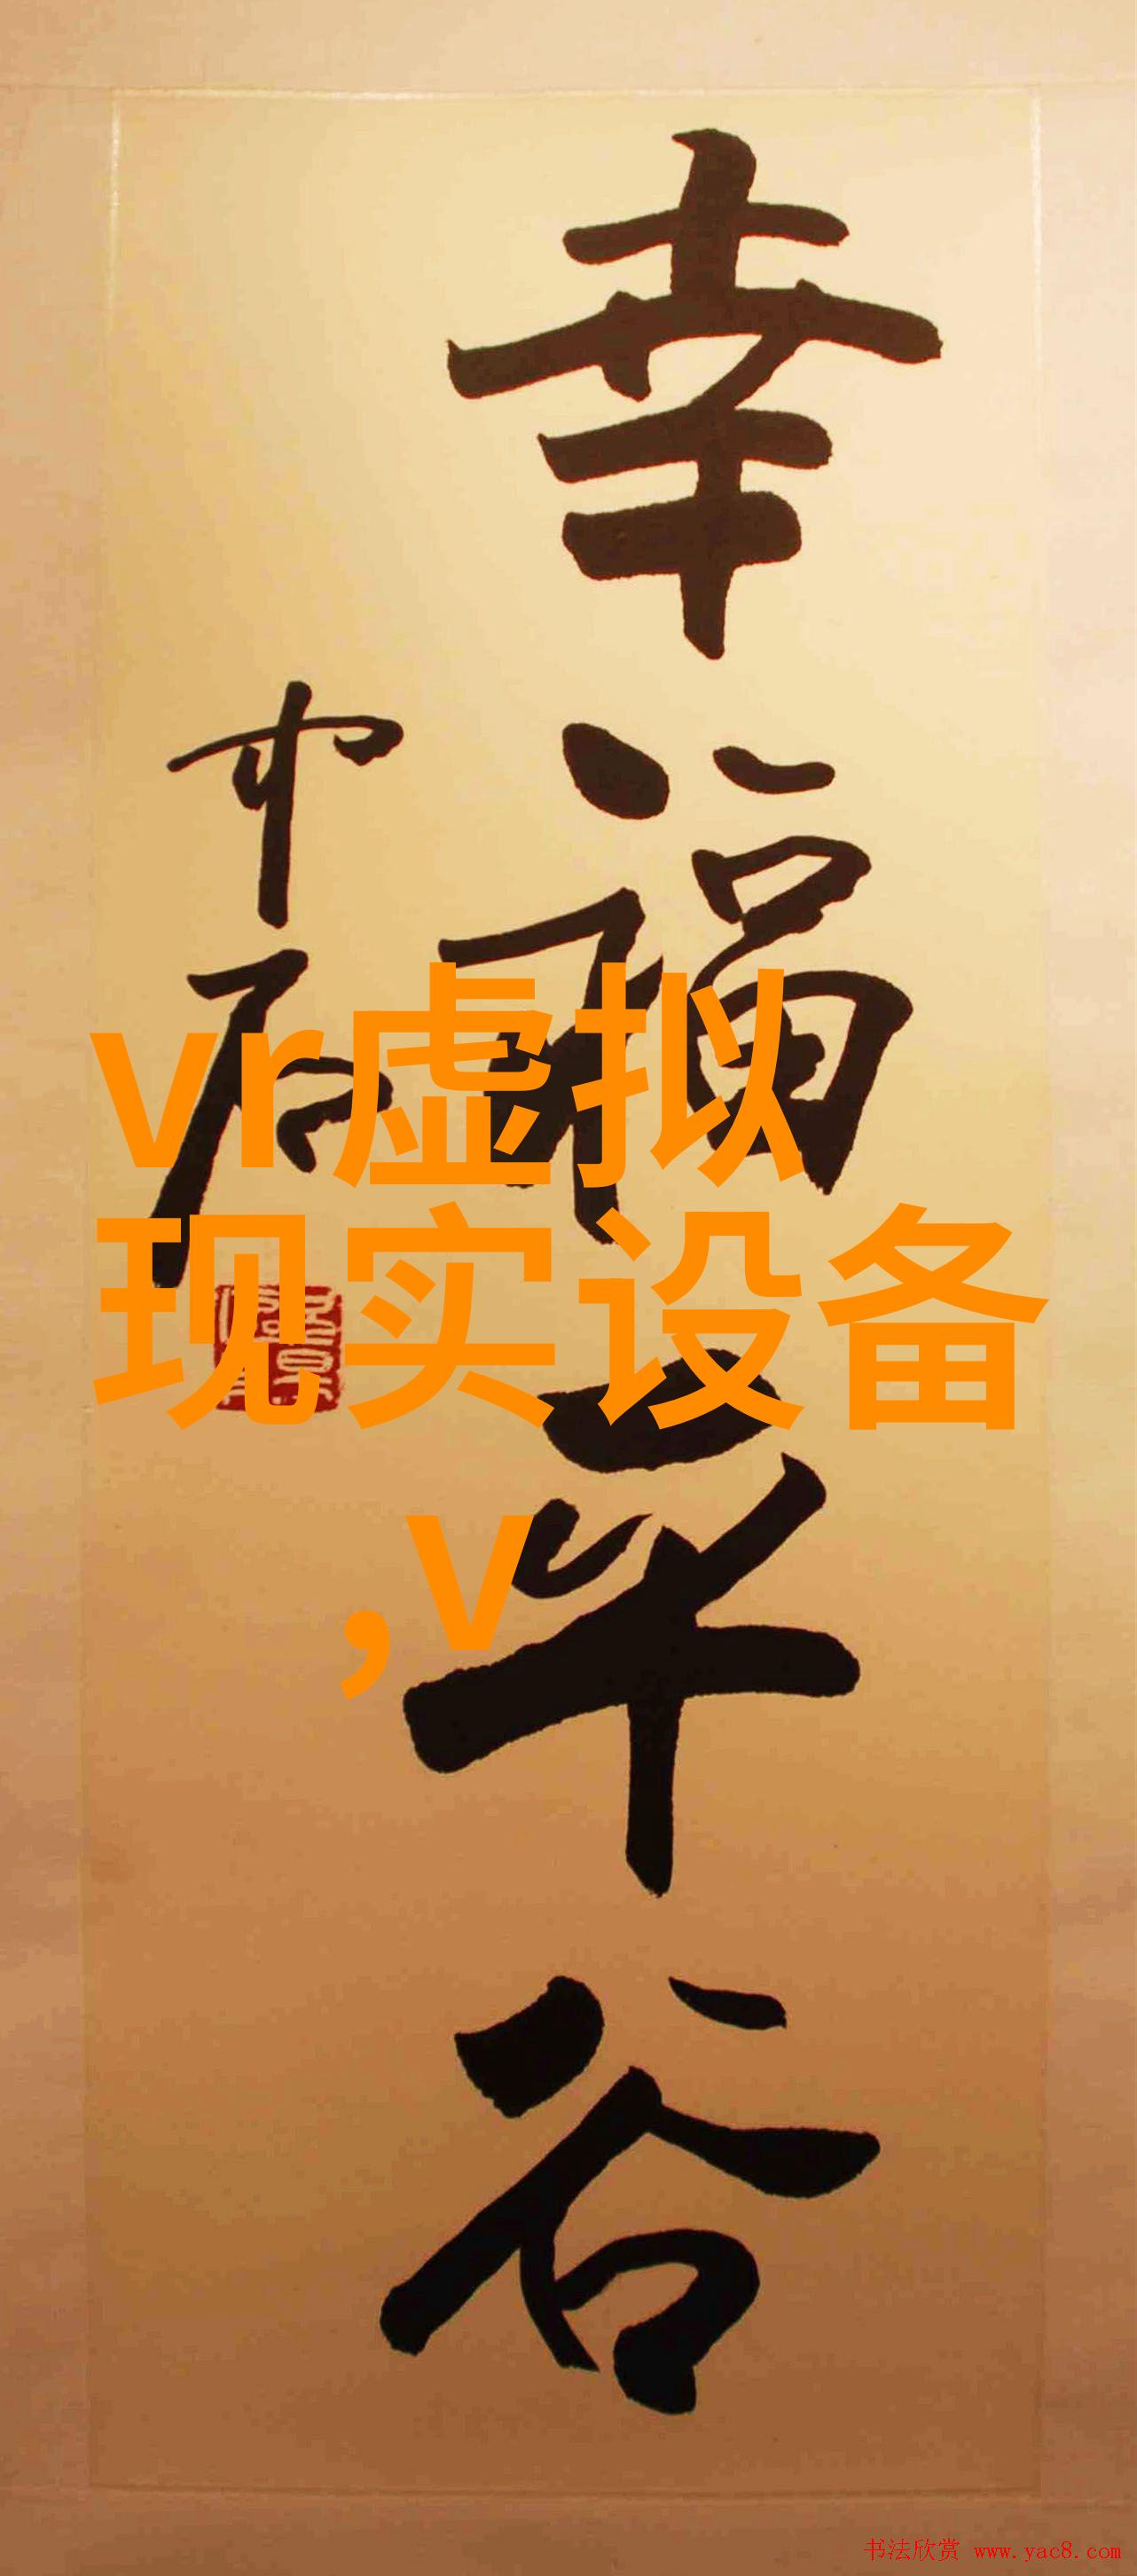 幸福平谷
中石
vr虚拟
现实设备
,v
书法欣赏 www.yac8.com